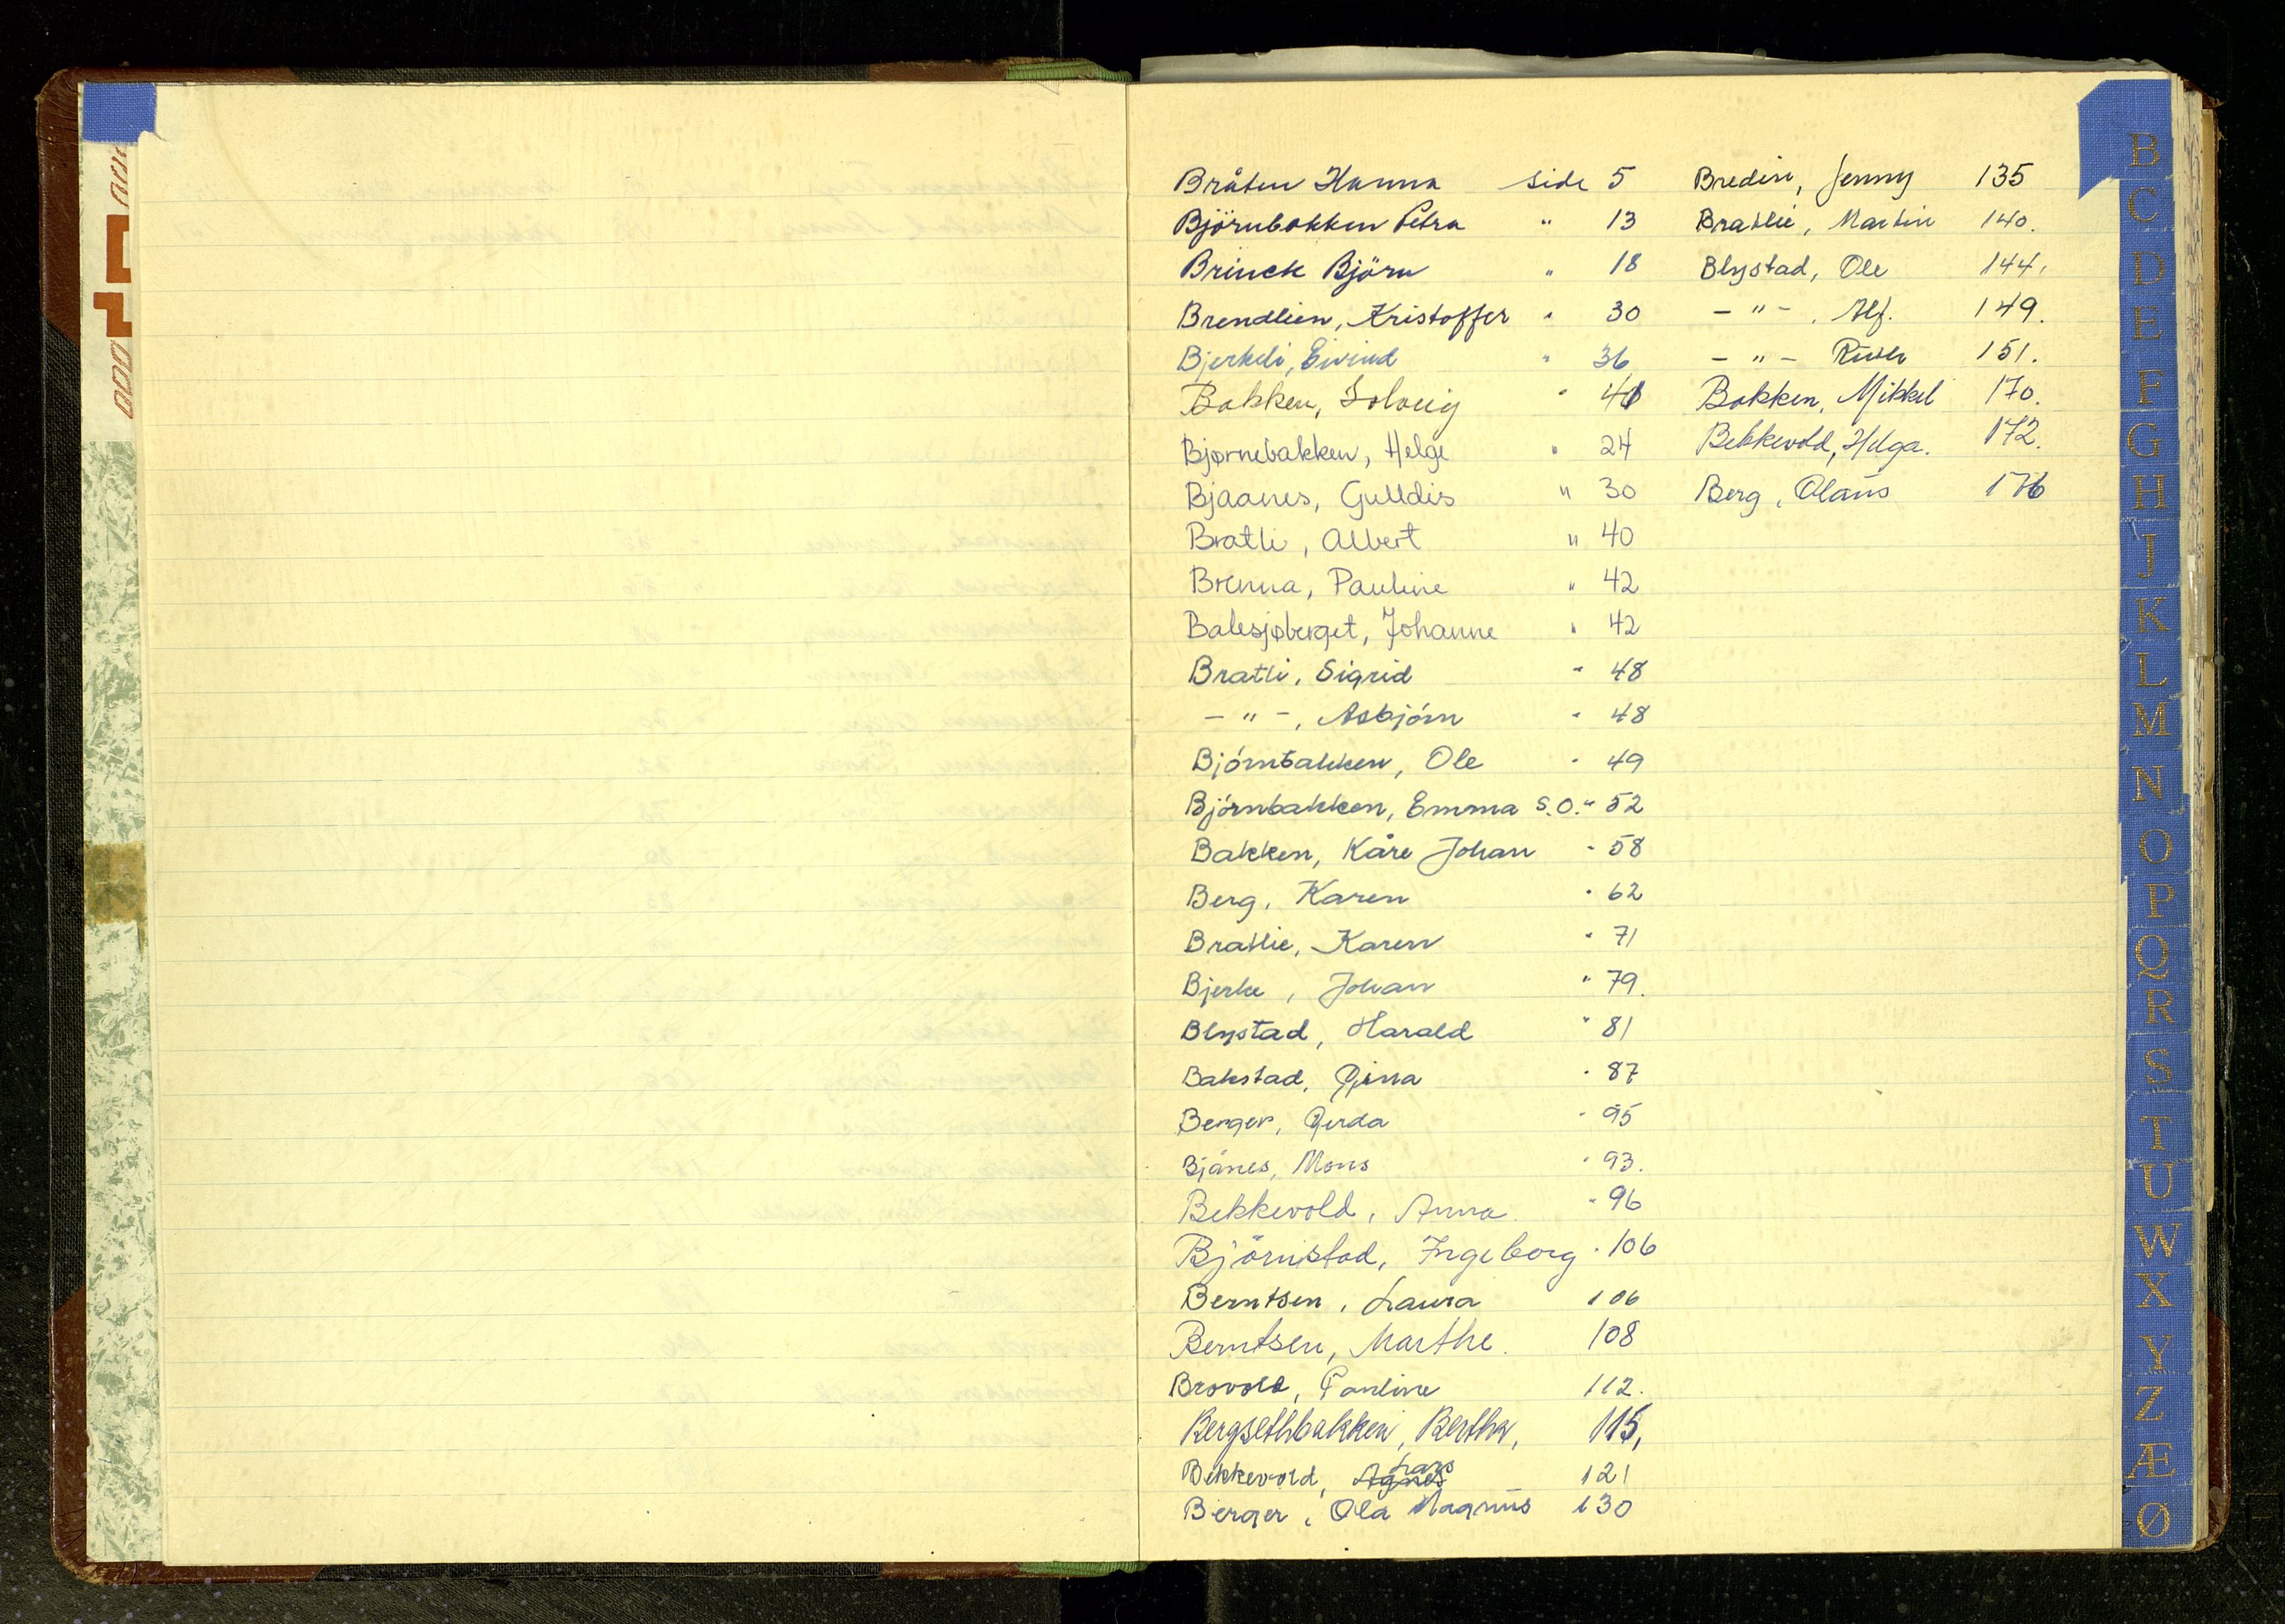 Bråten Hanna side 5
Björnbakken Petra " 13
Brinck Björn " 18
Brendlien, Kristoffer " 30
Bjerkeli, Eivind " 36
Bakken, Solveig "
Bjørnebakken, Helge " 24
Bjaanes, Gulldis " 30
Bratli, Albert " 40
Brenna, Pauline " 42
Balesjøberget, Johanne " 42
Bratli, Sigrid " 48
- " -, Asbjörn " 48
Björnbakken, Ole " 49
Björnbakken, Emma S.O. " 52
Bakken, Kåre Johan " 58
Berg, Karen " 62
Bratlie, Karen " 71
Bjerke, Johan " 79.
Blystad, Harald " 81
Bakstad, Gina " 87
Berger, Gerda " 95
Bjånes, Mons " 93.
Bekkevold, Anna " 96
Björnstad, Ingeborg " 106
Berntsen, Laura 106
Berntsen, Marthe. 108
Brovold, Pauline 112.
Bergsethbakken, Bertha, 115,
Bekkevold, Agnes Lars 121
Berger, Ola Magnus 130
Bredine, Jenny 135
Bratlie, Martin 140.
Blystad, Ole 144.
- " -, Alf. 149.
- " - Ruth 151.
Bakken, Mikkel 170.
Bekkevold, Helga. 172.
Berg, Olaus 176
B
C
D
E
F
G
H
J
K
L
M
N
O
P
Q
R
S
T
U
W
X
Y
Z
Æ
Ø